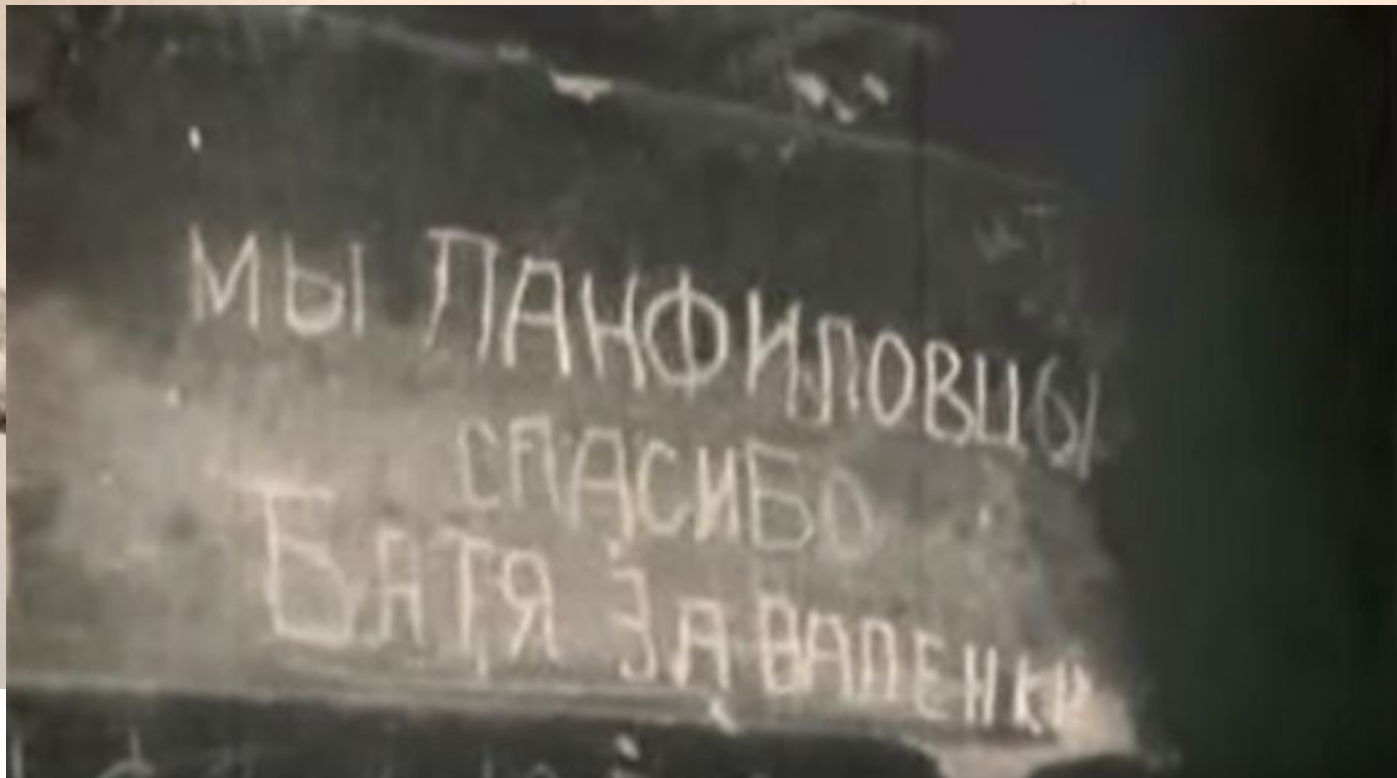 МЫ ПАНФИЛОВЦЫ
СПАСИБО
БАТЯ ЗА ВАЛЕНКИ